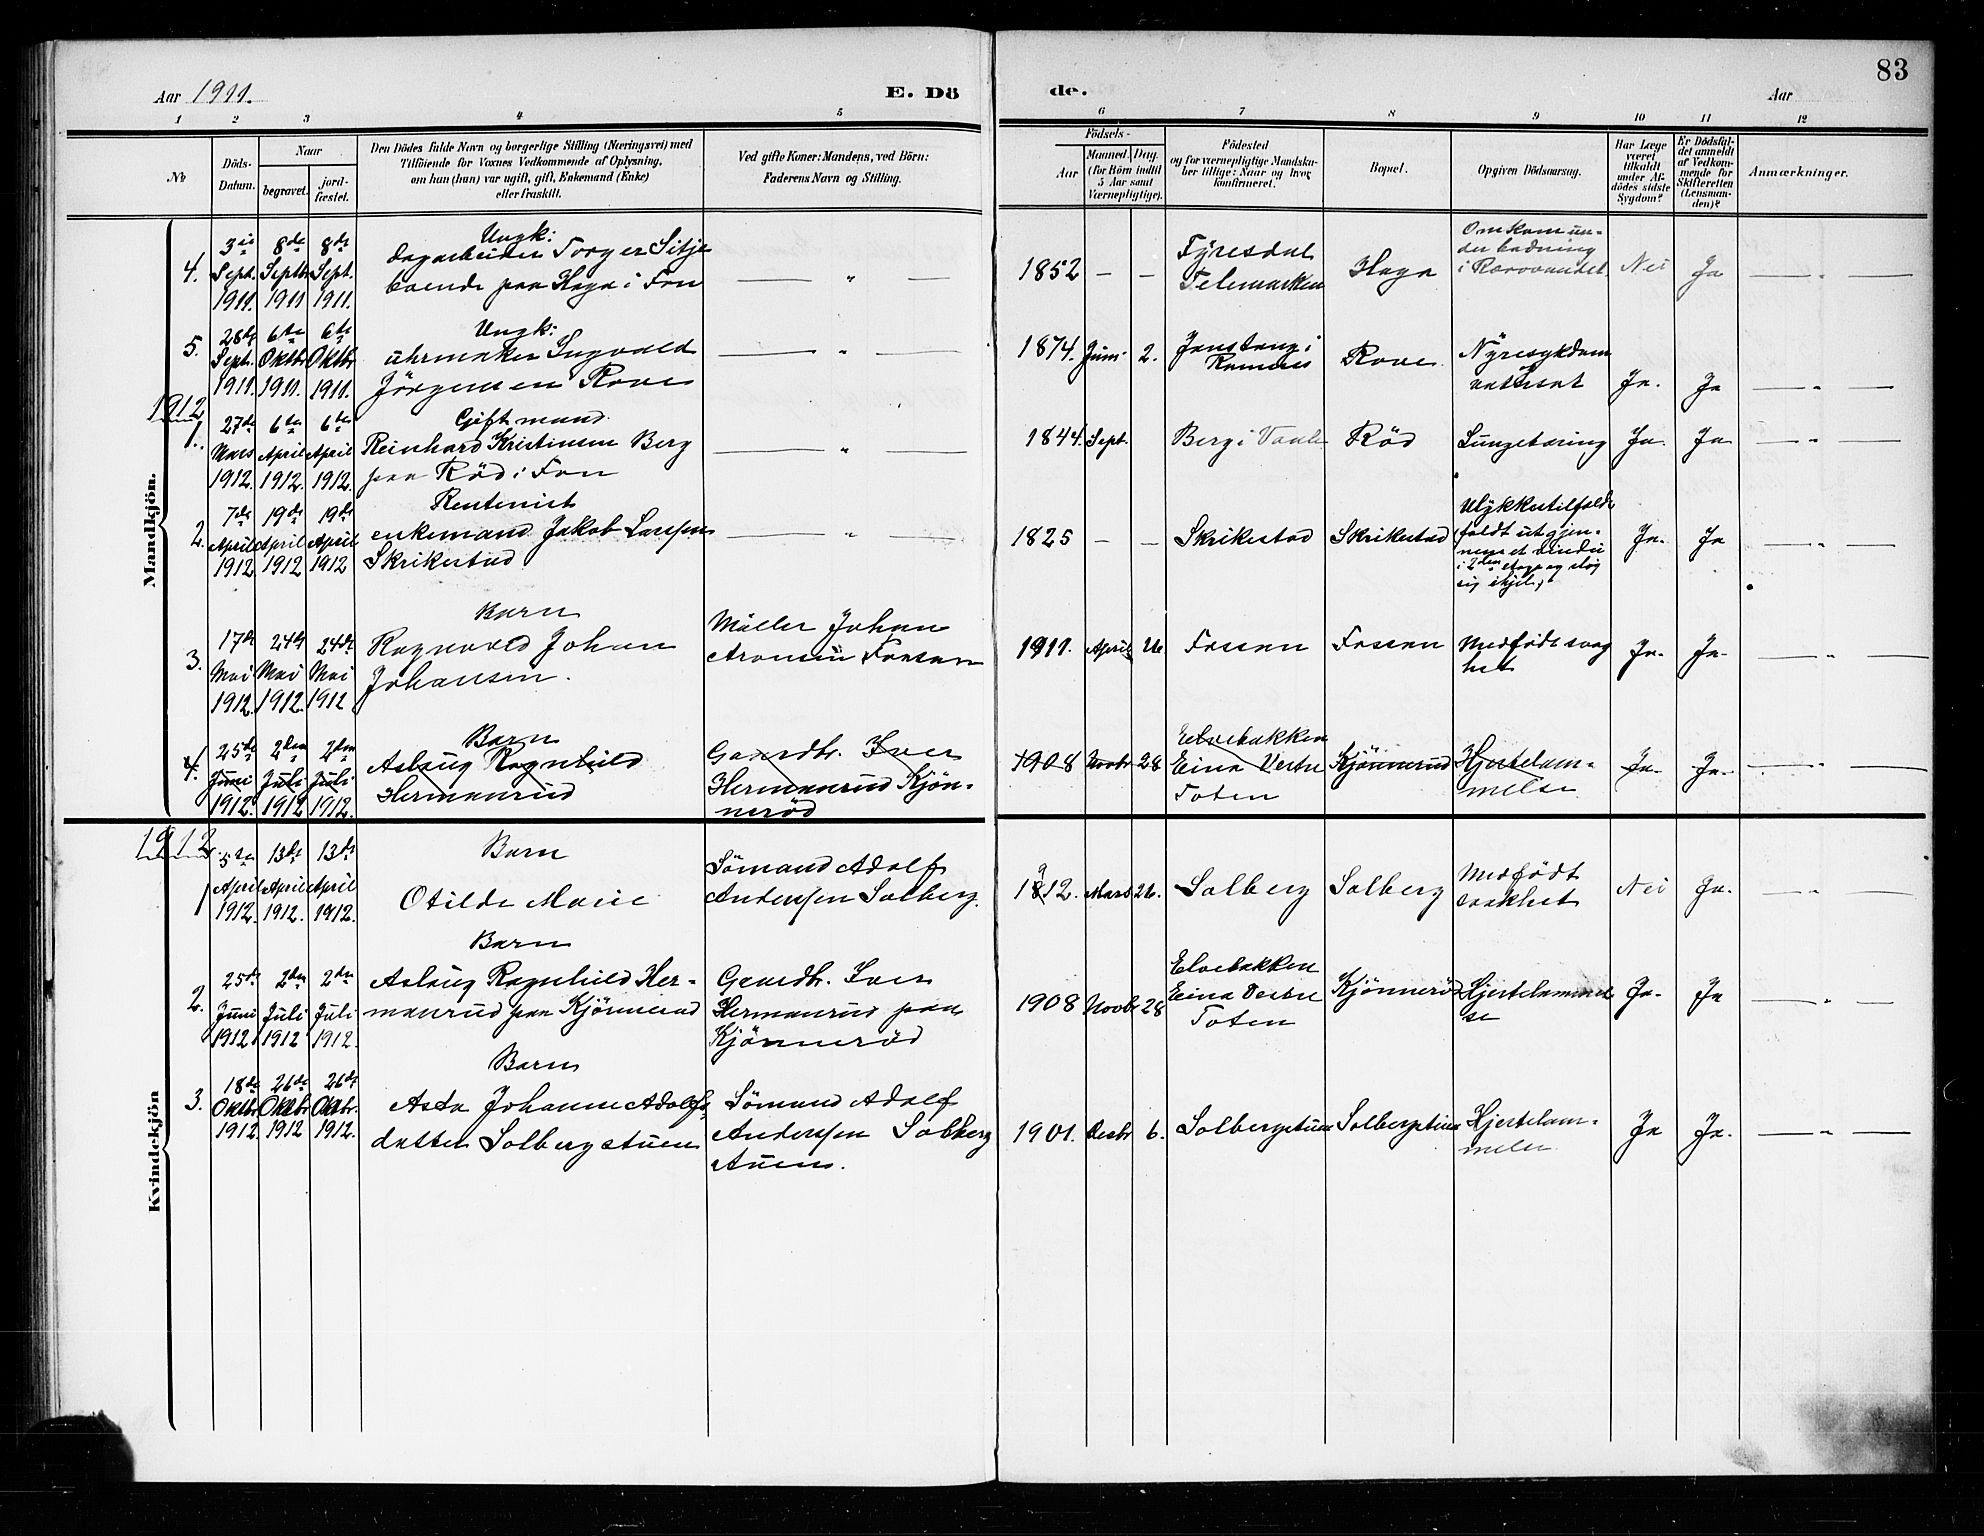 83
Aar 1911.
E. Dö
de.
Aar
1 2 3 4 5 6 7 8 9 10 11 12
No
Döds-
Datum.
Naar
begravet.
jord-
fæstet.
Den Dödes fulde Navn og borgerlige Stilling (Næringsvei) med
Tilföiende for Voxnes Vedkommende af Oplysning,
om han (hun) var ugift, gift, Enkemand (Enke)
eller fraskilt.
Ved gifte Koner: Mandens, ved Börn:
Faderens Navn og Stilling.
Födsels-
Aar
Maaned. Dag.
(for Börn indtil
5 Aar samt
Værnepligtige).
Födested
og for værnepligtige Mandska-
ber tillige: Naar og hvor
konfirmeret.
Bopæl.
Opgiven Dödsaarsag.
Har Læge
været
tilkaldt
under Af-
dödes sidste
Sygdom?
Er Dödsfal-
det anmeldt
af Vedkom-
mende for
Skifteretten
(Lensman-
den)?
Anmærkninger.
Mandkjön.
4.
3die Sept. 1911.
8de Septbr 1911
8de Sept. 1911.
Ungk:
dagarbeider Torger Sitje
boende paa Haga i Fon
— " —
1852 — —
Fyresdal
Telemarken
Haga
Omkom un-
der badning
i Revovandet
Nei
Ja
— " —
5.
28de Sept. 1911.
6te Oktbr 1911.
6te Oktbr 1911.
Ungk:
uhrmaker Ingvald
Jörgensen Rove
— " —
1874. Juni 2.
Ramnes
Rove
Nyresykdom
Ja.
Ja
— " —
1912
1.
27de Mars 1912.
6te April 1912.
6te April 1912.
Gift mand.
Reinhard Kristiansen Berg
paa Röd i Fon
— " —
1844. Sept.
Berg i Vaale
Röd
Lungetæring
Ja.
Ja
— " —
2.
7de April 1912
19de April 1912
19de April 1912
Rentenist
enkemand Jakob Larssen
Skrikestad
— " —
1825 — —
Skrikestad
Skrikestad
Ulykkestilfælde
faldt ut gjen-
nem et vindu
i 2den etage og slog
sig ihjel.
Ja.
Ja
— " —
3.
17de Mai 1912.
24de Mai 1912.
24de Mai 1912
Barn
Ragnvald Johan
Johansen.
Möller Johan
Aronsen Fossan
1911. April 26
Fossan
Fossan
Medfödt svag
het
Ja.
Ja.
— " —
4.
25de Juni 1912.
2den Juli 1912
2den Juli 1912.
Barn
Aslaug Ragnhild
Hermanrud
Gaardbr. Iver
Hermanrud Kjön-
neröd
1908 Novbr 28
Elvebakken
Eina Vestre
Toten
Kjönnerud
Hjertelam-
melse
Ja.
Ja.
Kvindekjön
1912.
1
5te April 1912.
13de April 1912.
13de April 1912.
Barn
Otilde Marie
Sömand Adolf
Anderssen Solberg.
1912. Mars 26.
Solberg
Solberg
Medfödt
svakhet
Nei
Ja.
— " —
2.
25de Juni 1912
2den Juli 1912
2den Juli 1912.
Barn
Aslaug Ragnhild Her-
manrud paa Kjönnerud
Gaardbr. Iver
Hermanrud paa
Kjönneröd
1908 Novbr 28
Elvebakken
Eina Vestre
Toten
Kjönneröd
Hjertelammel
se
Ja.
Ja
— " —
3.
18de Oktbr 1912.
26de Oktbr 1912
26de Oktbr. 1912.
Barn
Asta Johanne Adolfs
datter Solbergstuen
Sömand Adolf
Anderssen Solberg
stuen.
1901. Desbr 6.
Solbergstuen
Solbergstuen
Hjertelam-
melse
Ja
Ja.
— " —